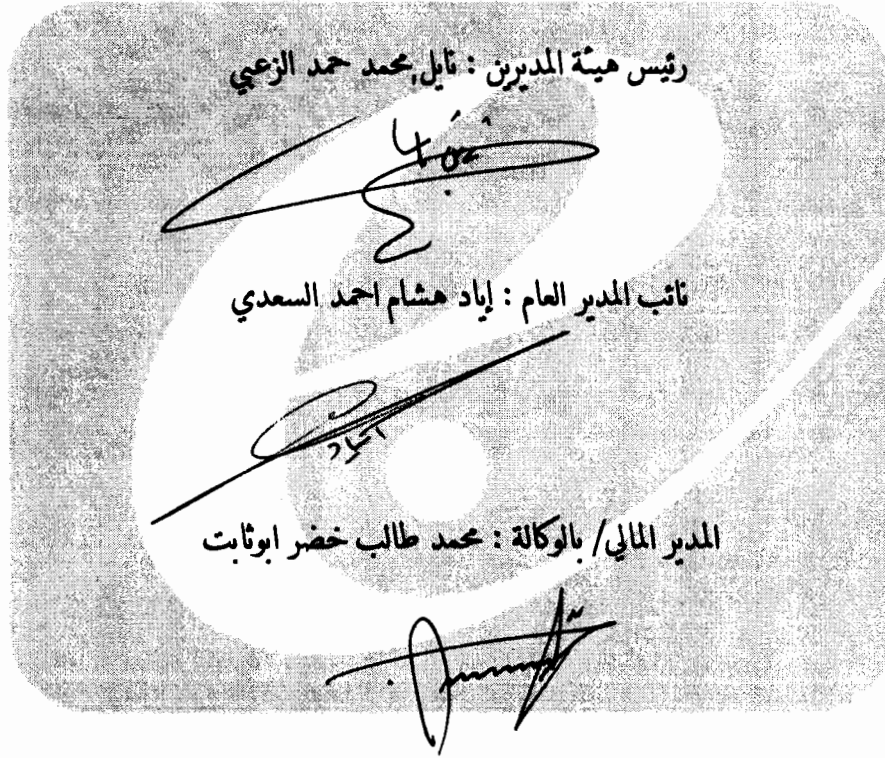 رئيس هيئة المديرين : نايل محمد حمد الزعبي
نائب المدير العام : إياد هشام احمد السعدي
اياد
المدير المالي/ بالوكالة : محمد طالب خضر ابوثابت